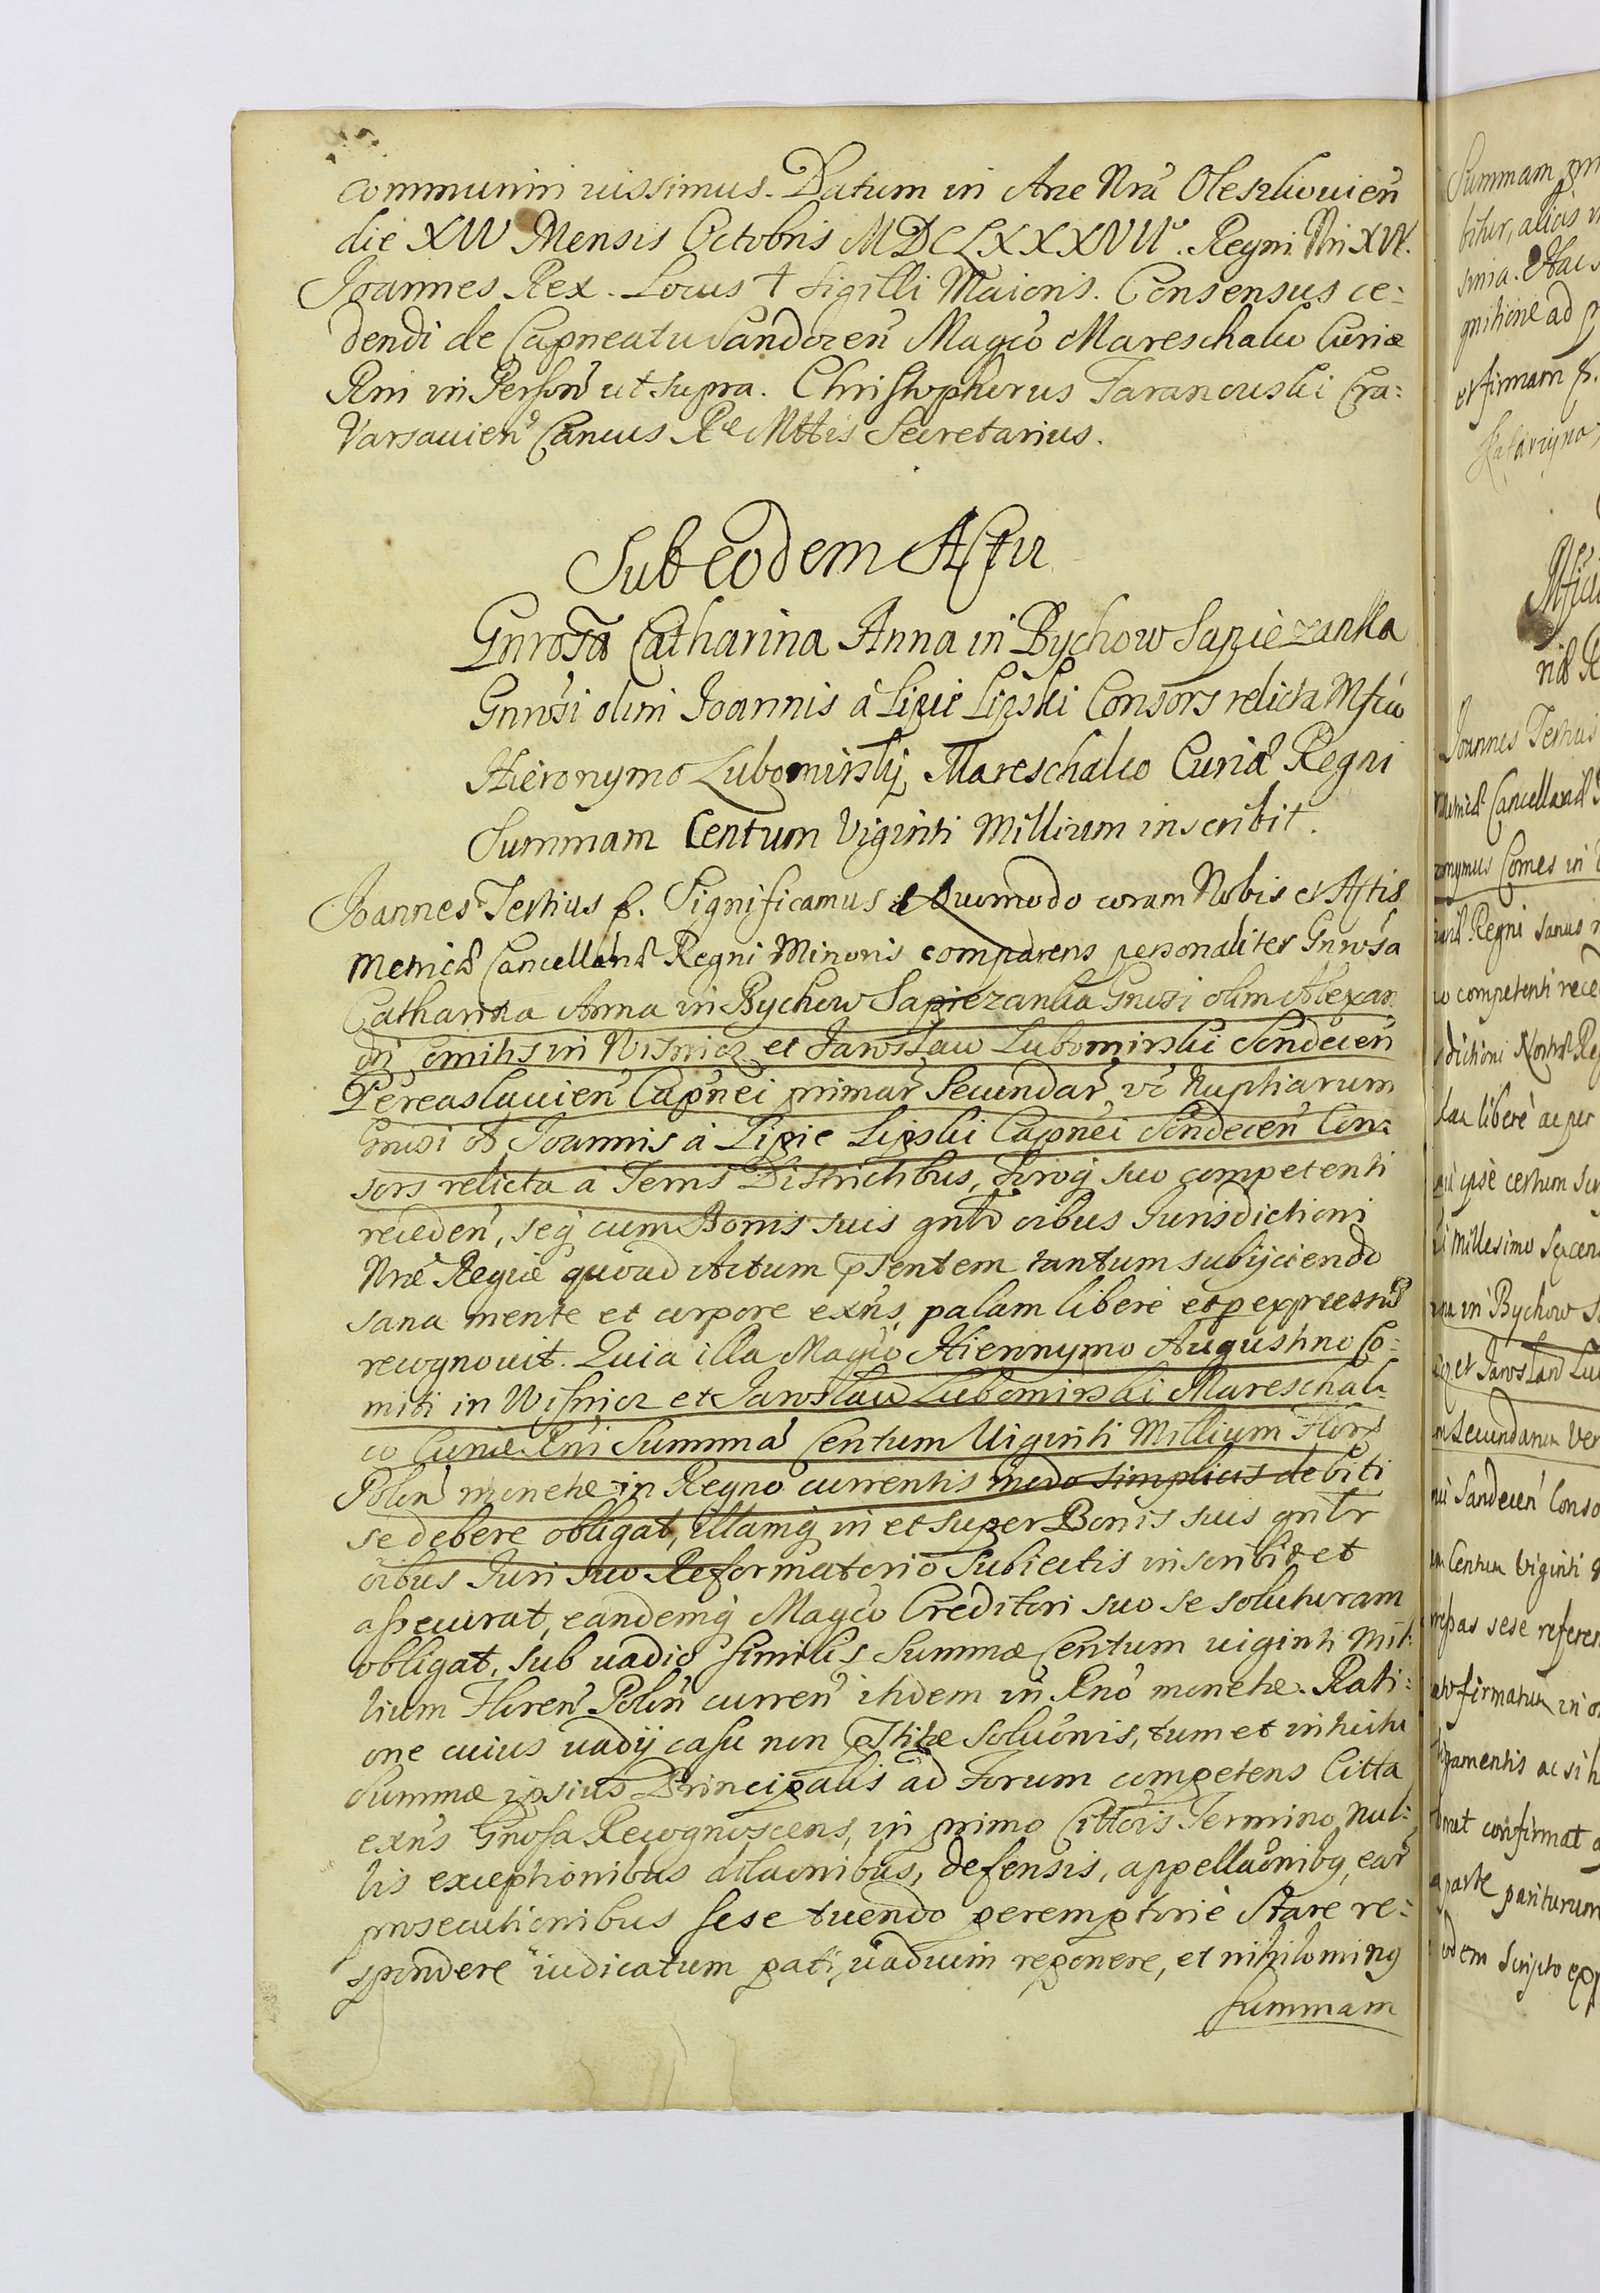 communiri iussimus. Datum in Arce Nrã Oleszkouien̄
die XIV Mensis Octobris MDCLXXXVII°. Regni Nri XIV.
Joannes Rex. Locus † Sigilli Maioris. Consensus ce:
dendi de Capneatu Sandecen̄ Magco Mareschalco Curiæ
Rni in Person̄ ut supra. Christophorus Taranouski Cra:
Varsauien̄ Cancus Rᵉ Mttis Secretarius.
Sub eodem Actu
Gnrosa Catharina Anna in Bychow Sapiezanka
Gnrosi olim Joannis à Lipie Lipski Consors relicta Mfico
Hieronymo Lubomirskij Mareschalco Curiæ Regni
Summam Centum Viginti Millium inscribit.
Joannes Tertius &. Significamus & Quomodo coram Nobis et Actis
Metricæ Cancellariæ Regni Minoris comparens personaliter Gnrosa
Catharina Anna in Bychow Sapiezanka Gnrosi olim Alexan
dri Comitis in Wisnicz et Jarosław Lubomirski Sendecen̄
Pereaslauien̄ Capnei primar̄ Secundar̄ vē Nuptiarum
Gnrosi ol Joannis à Lipie Lipski Capnei Sendecen̄ Con:
sors relicta à Terris Districtibus, foroq suo competenti
receden̄, seq cum Bonis suis gnlr oibus Jurisdictioni
Nræ Regiæ quoad Actum psentem tantum subijciendo
sana mente et corpore exns, palam libere et p expressum
recognouit. Quia illa Magco Hieronymo Augustino Co:
miti in Wisnicz et Jarosław Lubomirski Mareschal:
co Curiæ Rni Summa Centum Viginti Millium Flor
Polon̄ monetæ in Regno currentis modo simplicis debiti
se debere obligat, illamq in et super Bonis suis gnlr
oibus Juri suo Reformatorio Subiectis inscribit et
assecurat, eandemq Magco Creditori suo se soluturam
obligat, sub vadio similis Summæ Centum viginti Mil:
lium Floren̄ Polon̄ curren̄ itidem in Rno monetæ. Rati:
one cuius vadij casu non pstitæ soluonis, tum et intuitu
Summæ ipsius Principalis ad Forum competens Citta
exns Gnosa Recognoscens, in primo Cittois Termino, nul:
lis exceptionibus dilaonibus, defensis, appellaonibq, ear
prosecutionibus sese tuendo peremptoriè Stare re:
spondere iudicatum pati, vadium reponere, et nihilominq
summam
Summam
bitur, alias
omia. Hac
gnitione ad
et firmam &.
Katarzyna
Joannes Tertius
Metricæ Cancellariæ
ronymus Comes in
Regni sanus
competenti rece
dictioni Nostræ Re
libere ac per
ipse certum
Millesimo Sexcen
in Bychow
et Jarosław Lu
Secundarum Ver
Sandecen̄ Conso
Centum Viginti
sese referen
firmatum in
gamentis ac si
confirmat
parte pariturum
odem scripto exp